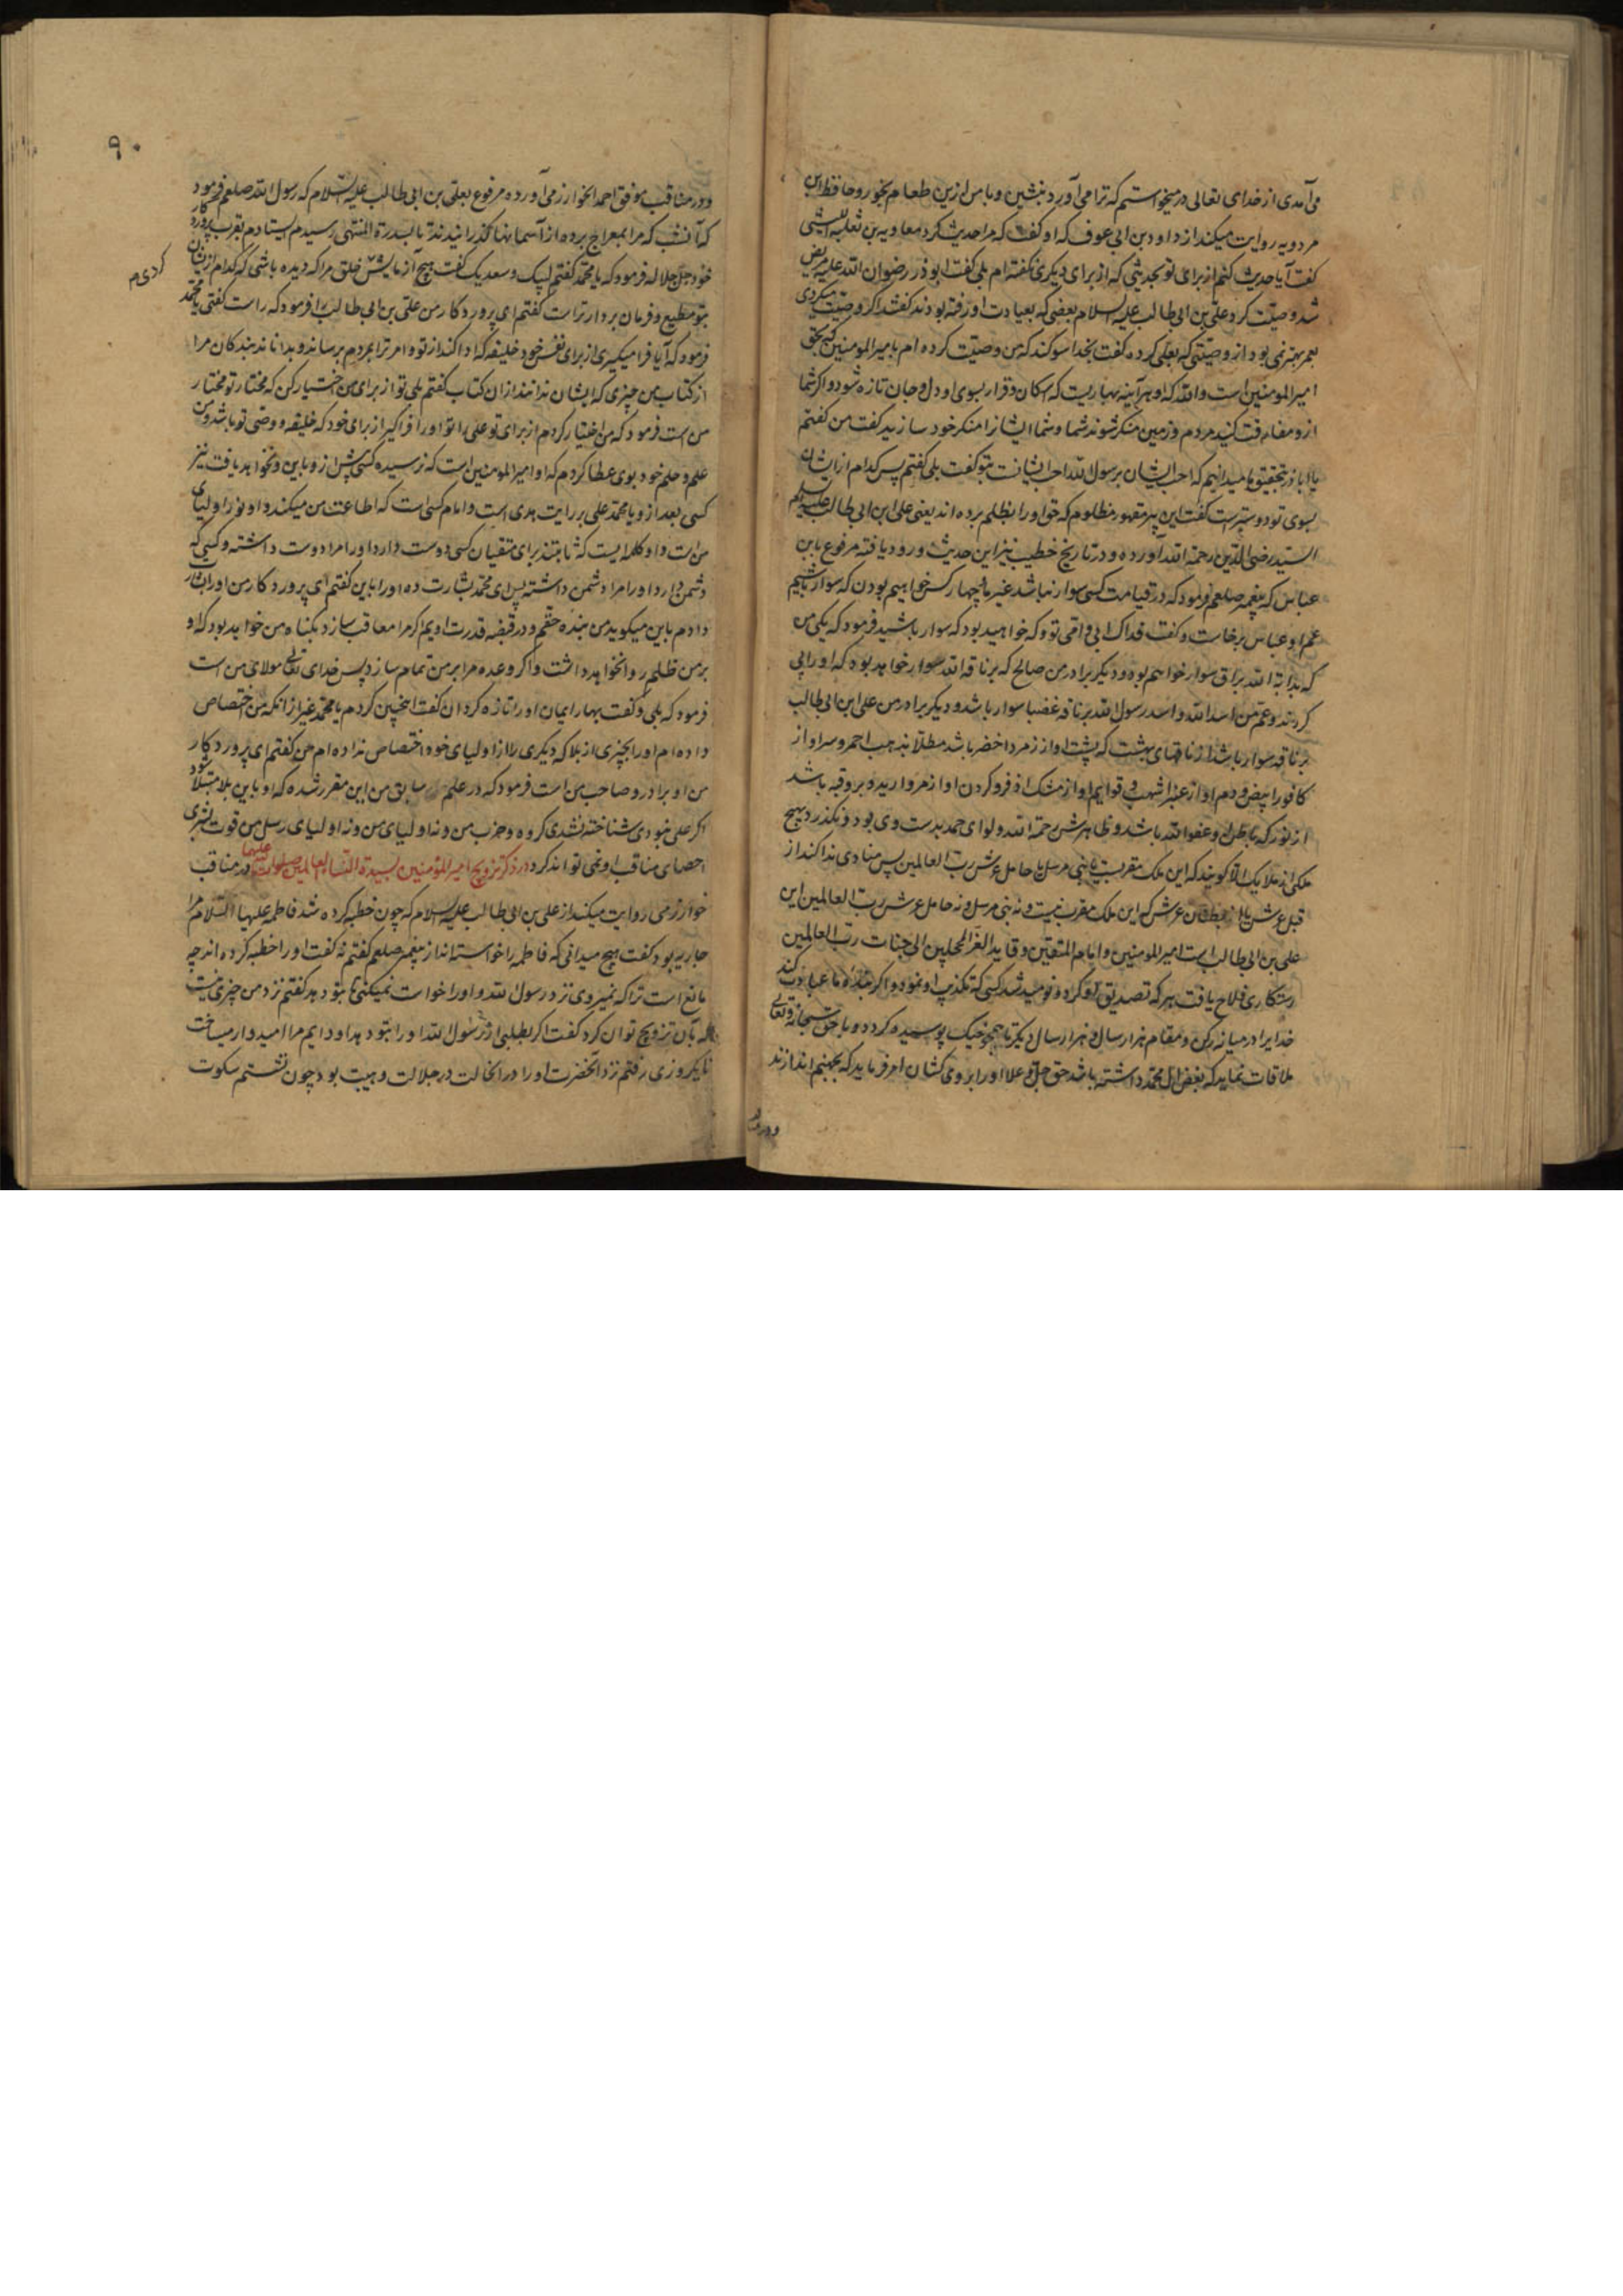 می آمدی از خدای تعالی درمیخواستم که ترا می آورد بنشین و با من ازین طعام بخور و حافظ ابن
مردویه روایت میکند از داود بن ابی عوف که او گفت که مرا حدیث کرد معاویه بن ثعلبه اللیثی
گفت آیا حدیث کنم از برای تو بحدیثی که از برای دیگری نگفته ام بلی گفت ابوذر رضوان الله علیه مریض
شد وصیت کرد علی بن ابی طالب علیه السلام بعضی که بعیادت او رفته بودند گفتند اگر وصیت میکردی
بعمر بهتر می بود از وصیتی که بعلی کرده گفت بخدا سوگند که من وصیت کرده ام بامیرالمومنین که بحق
امیرالمومنین است والله که او هرآینه بهاریست که سکان و قرار بسوی او دل و جان تازه شود و اگر شما
ازو مفارقت کنید مردم و زمین منکر شوند شما و شما ایشانرا منکر خود سازید گفت من گفتم
یا اباذر بتحقیق ما میدانیم که احب ایشان برسول الله احب ایشانست بتو گفت بلی گفتم پس کدام از ایشان
بسوی تو دوسترست گفت این پیر مقهور مظلوم که حق او را بظلم برده اند یعنی علی ابن ابی طالب علیه السلام
السید رضی الدین رحمة الله آورده و در تاریخ خطیب نیز این حدیث ورود یافته مرفوع بابن
عباس که پیغمبر صلعم فرمود که در قیامت کسی سوار نباشد غیر ما چهار کس خواهیم بودن که سوار باشیم
عم او عباس برخاست و گفت فداک ابی و امی تو و که خواهید بود که سوار باشید فرمود که یکی من
که بدابة الله براق سوار خواهم بود و دیگر برادر من صالح که بر ناقة الله سوار خواهد بود که او را پی
کردند و عم من اسد الله و اسد رسول الله بر ناقه غضبا سوار باشد و دیگر برادر من علی ابن ابی طالب
بر ناقه سوار باشد از ناقهای بهشت که پشت او از زمرد اخضر باشد مطلا بذهب احمر و سر او از
کافور ابیض و دم او از عنبر اشهب و قوایم او از مشک اذفر و گردن او از مروارید و برو قبه باشد
از نور که باطن او عفو الله باشد و ظاهرش رحمة الله و لوای حمد بدست وی بود و نگذرد بهیچ
ملکی از ملایک الا گویند که این ملک مقربست یا نبی مرسل یا حامل عرش رب العالمین پس منادی ندا کند از
قبل عرش یا از بطنان عرش که این ملک مقرب نیست و نه نبی مرسل و نه حامل عرش رب العالمین این
علی بن ابی طالب است امیرالمومنین و امام المتقین و قاید الغر المحجلین الی جنات رب العالمین
رستگاری و فلاح یافت هر که تصدیق او کرد و نومید شد کسی که تکذیب او نمود و اگر عبادت کند
خدایرا در میانه رکن و مقام هزار سال و هزار سال دیگر تا همچو خیک پوسیده گردد و با حق سبحانه و تعالی
ملاقات نماید که بغض ال محمد داشته باشد حق جل و علا او را بر وی کشان امر فرماید که بجهنم اندازند
و در
۹۰
و در مناقب موفق احمد الخوارزمی آورده مرفوع بعلی بن ابی طالب علیه السلام که رسول الله صلعم فرمود
که آن شب که مرا بمعراج برده از آسمانها گذرانیدند تا بسدرة المنتهی رسیدم ایستادم بقرب پروردگار
خود جل جلاله فرمود که یا محمد گفتم لبیک و سعدیک گفت هیچ آزمایش خلق مرا که دیده باشی که کدام ازیشان
کردی م
بتو مطیع و فرمان بردار ترست گفتم ای پروردگار من علی بن ابی طالب را فرمود که راست گفتی یا محمد
فرمود که آیا فرا میگیری از برای نفس خود خلیفه که ادا کند از تو و امر ترا بمردم برساند و بداناند بندکان مرا
از کتاب من چیزی که ایشان ندانند از ان کتاب گفتم بلی تو از برای من اختیار کن که مختار تو مختار
من است فرمود که من اختیار کردم از برای تو علی را تو او را فراگیر از برای خود که خلیفه و وصی تو باشد و من
علم و حلم خود بوی عطا کردم که او امیرالمومنین است که نرسیده کسی پیش ازو باین و نخواهد یافت نیز
کسی بعد ازو یا محمد علی رایت هدی است و امام کسی است که اطاعت من میکند و او نور اولیای
من است و او کلمه ایست که ثابتند برای متقیان کسی دوست دارد او را مرا دوست داشته و کسی که
دشمن دارد او را مرا دشمن داشته پس ای محمد بشارت ده او را باین گفتم ای پروردگار من او را بشارت
دادم باین میکوید من بنده حقم و در قبضه قدرت اویم اگر مرا معاقب سازد بگناه من خواهد بود که او
بر من ظلم روا نخواهد داشت و اگر وعده مرا بر من تمام سازد پس خدای تعالی مولای من است
فرمود که بلی و گفت بهار ایمان او را تازه گردان گفت اینچنین کردم یا محمد غیر از انکه من اختصاص
داده ام او را بچیزی از بلا که دیگری را از اولیای خود اختصاص نداده ام من گفتم ای پروردگار
من او برادر و صاحب من است فرمود که در علم سابق من این مقرر شده که او باین بلا مبتلا شود
اگر علی نبودی شناخته نشدی گروه و حزب من و نه اولیای من و نه اولیای رسل من قوت بشری
احصای مناقب او نمی تواند کرد در ذکر تزویج امیرالمؤمنین بسیدة النسا العالمین صلوات علیها در مناقب
خوارزمی روایت میکند از علی بن ابی طالب علیه السلام که چون خطبه کرده شد فاطمه علیها السلام مرا
جاریه بود گفت هیچ میدانی که فاطمه را خواسته اند از پیغمبر صلعم گفتم نه گفت او را خطبه کرده اند چه
مانع است ترا که نمیروی نزد رسول الله و او را خواست نمیکنی تا بتو دهد گفتم نزد من چیزی نیست
که بآن تزویج توان کرد گفت اگر بطلبی از رسول الله او را بتو دهد او دایم مرا امیدوار میساخت
تا یکروزی رفتم نزد آنحضرت و او را در انحالت در جلالت و هیبت بود چون نشستم سکوت